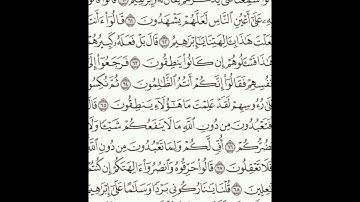 قَالُوا۟ سَمِعْنَا فَتًى يَذْكُرُهُمْ يُقَالُ لَهُۥٓ إِبْرَٰهِيمُ ٦٠ قَالُوا۟ فَأْتُوا۟
بِهِۦ عَلَىٰٓ أَعْيُنِ ٱلنَّاسِ لَعَلَّهُمْ يَشْهَدُونَ ٦١ قَالُوٓا۟ ءَأَنتَ
فَعَلْتَ هَٰذَا بِـَٔالِهَتِنَا يَٰٓإِبْرَٰهِيمُ ٦٢ قَالَ بَلْ فَعَلَهُۥ كَبِيرُهُمْ
هَٰذَا فَسْـَٔلُوهُمْ إِن كَانُوا۟ يَنطِقُونَ ٦٣ فَرَجَعُوٓا۟ إِلَىٰٓ
أَنفُسِهِمْ فَقَالُوٓا۟ إِنَّكُمْ أَنتُمُ ٱلظَّٰلِمُونَ ٦٤ ثُمَّ نُكِسُوا۟
عَلَىٰ رُءُوسِهِمْ لَقَدْ عَلِمْتَ مَا هَٰٓؤُلَآءِ يَنطِقُونَ ٦٥ قَالَ
أَفَتَعْبُدُونَ مِن دُونِ ٱللَّهِ مَا لَا يَنفَعُكُمْ شَيْـًٔا وَلَا
يَضُرُّكُمْ ٦٦ أُفٍّ لَّكُمْ وَلِمَا تَعْبُدُونَ مِن دُونِ ٱللَّهِ
أَفَلَا تَعْقِلُونَ ٦٧ قَالُوا۟ حَرِّقُوهُ وَٱنصُرُوٓا۟ ءَالِهَتَكُمْ إِن كُنتُمْ
فَٰعِلِينَ ٦٨ قُلْنَا يَٰنَارُ كُونِى بَرْدًا وَسَلَٰمًا عَلَىٰٓ إِبْرَٰهِيمَ